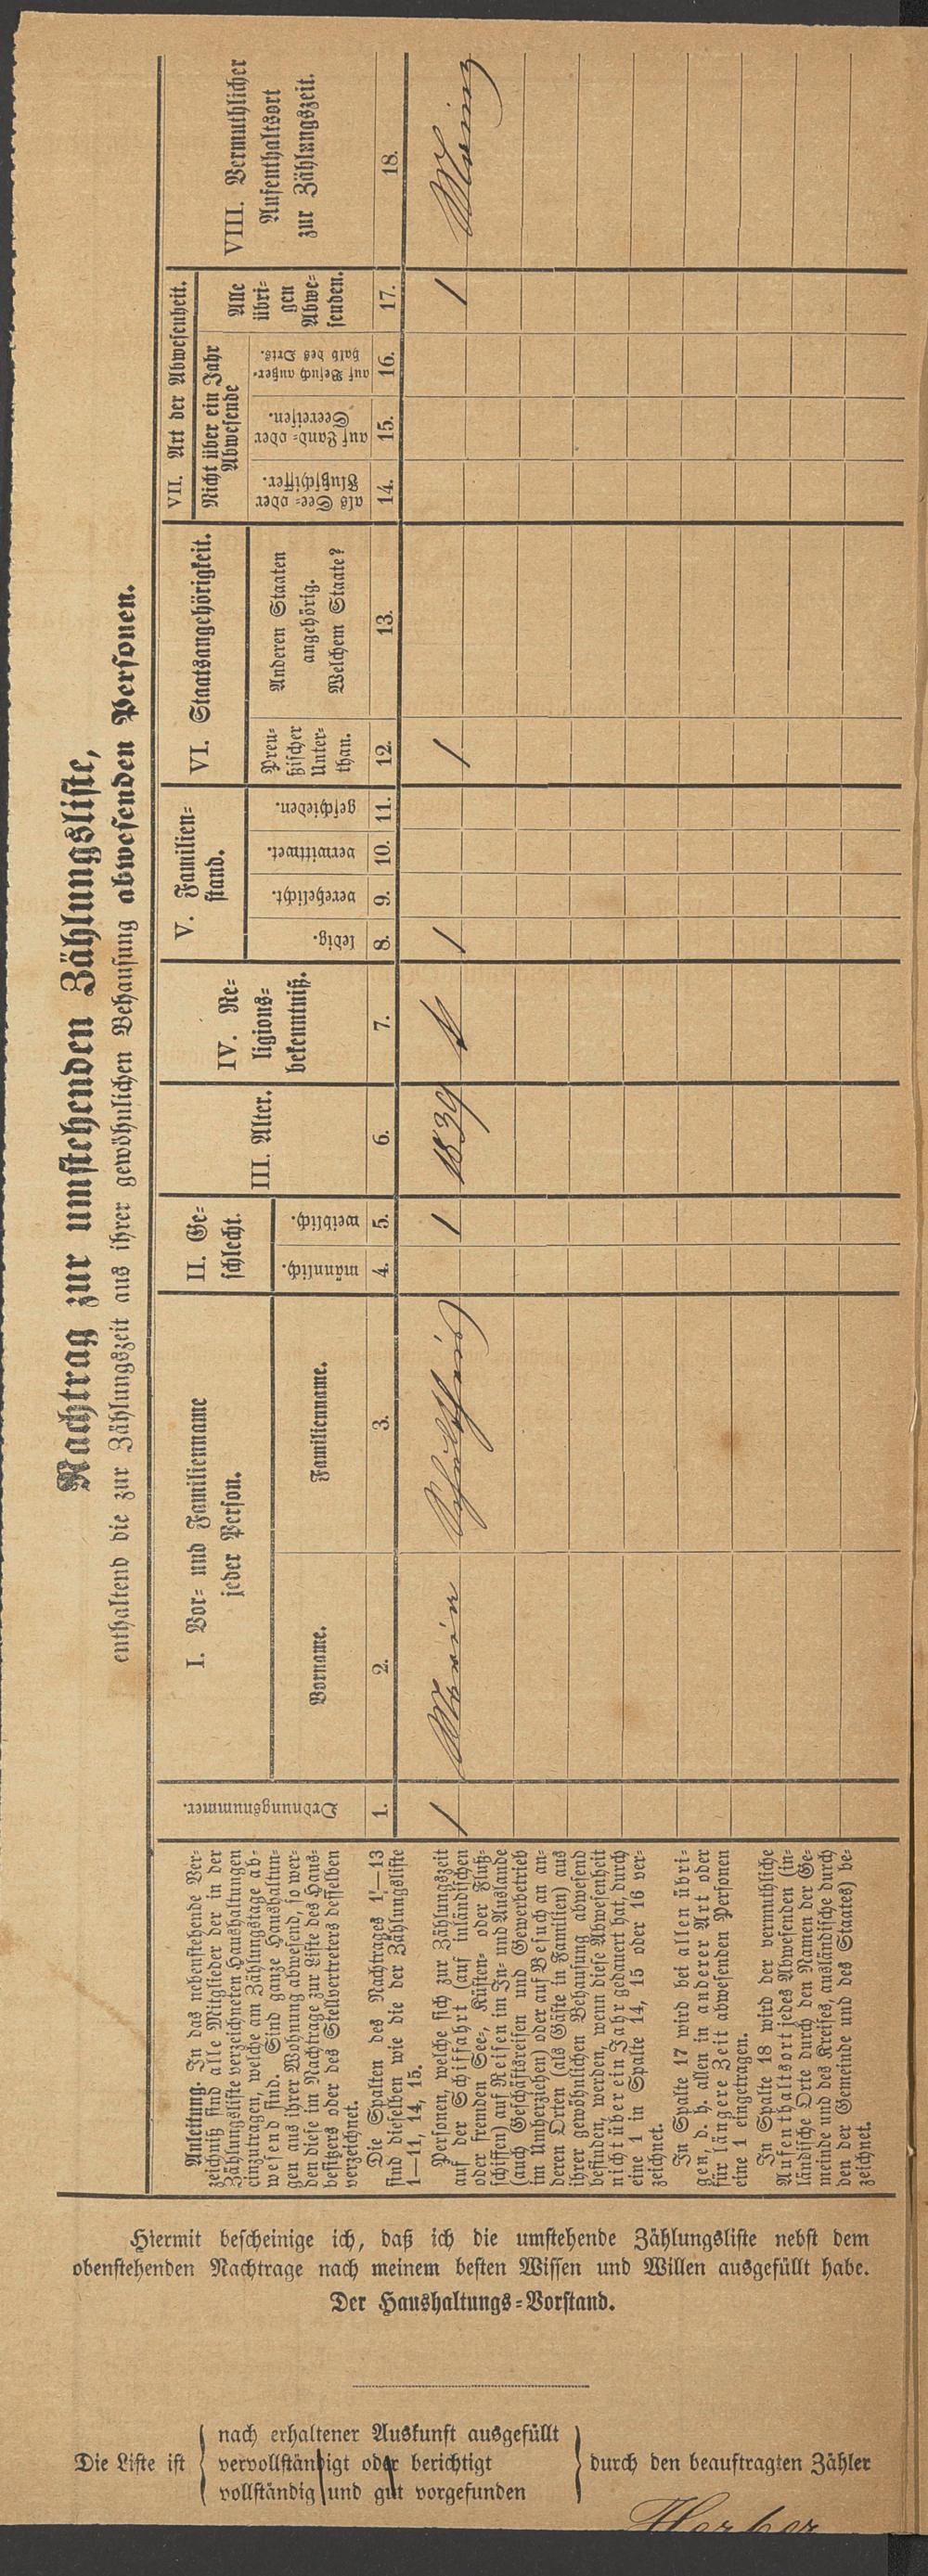 Nachtrag zur umstehenden Zählungsliste,
enthaltend die zur Zählungszeit aus ihrer gewöhnlichen Behausung abwesenden Personen.
Anleitung. In das nebenstehende Ver-
zeichniß sind alle Mitglieder der in der
Zählungsliste verzeichneten Haushaltungen
einzutragen, welche am Zählungstage ab-
wesend sind. Sind ganze Haushaltun-
gen aus ihrer Wohnung abwesend, so wer-
den diese im Nachtrage zur Liste des Haus-
besitzers oder des Stellvertreters desselben
verzeichnet.
Die Spalten des Nachtrages 1—13
sind dieselben wie die der Zählungsliste
1—11, 14, 15.
Personen, welche sich zur Zählungszeit
auf der Schiffahrt (auf inländischen
oder fremden See-, Küsten- oder Fluß-
schiffen) auf Reisen im In- und Auslande
(auch Geschäftsreisen und Gewerbetrieb
im Umherziehen) oder auf Besuch an an-
deren Orten (als Gäste in Familien) aus
ihrer gewöhnlichen Behausung abwesend
befinden, werden, wenn diese Abwesenheit
nicht über ein Jahr gedauert hat, durch
eine 1 in Spalte 14, 15 oder 16 ver-
zeichnet.
In Spalte 17 wird bei allen übri-
gen, d. h. allen in anderer Art oder
für längere Zeit abwesenden Personen
eine 1 eingetragen.
In Spalte 18 wird der vermuthliche
Aufenthaltsort jedes Abwesenden (in-
ländische Orte durch den Namen der Ge-
meinde und des Kreises, ausländische durch
den der Gemeinde und des Staates) be-
zeichnet.
Ordnungsnummer.
I. Vor- und Familienname
jeder Person.
Vorname.
Familienname.
II. Ge-
schlecht.
männlich.
weiblich.
III. Alter.
IV. Re-
ligions-
bekenntniß.
V. Familien-
stand.
ledig.
verehelicht.
verwittwet.
geschieden.
VI. Staatsangehörigkeit.
Preu-
ßischer
Unter-
than.
Anderen Staaten
angehörig.
Welchem Staate?
VII. Art der Abwesenheit.
Nicht über ein Jahr
Abwesende
als See- oder
Flußschiffer.
auf Land- oder
Seereisen.
auf Besuch außer-
halb des Orts.
Alle
übri-
gen
Abwe-
senden.
VIII. Vermuthlicher
Aufenthaltsort
zur Zählungszeit.
1. 2. 3. 4. 5. 6. 7. 8. 9. 10. 11. 12. 13. 14. 15. 16. 17. 18.
1 1 1839 1 1 1 Mainz
Hiermit bescheinige ich, daß ich die umstehende Zählungsliste nebst dem
obenstehenden Nachtrage nach meinem besten Wissen und Willen ausgefüllt habe.
Der Haushaltungs-Vorstand.
Die Liste ist
nach erhaltener Auskunft ausgefüllt
vervollständigt oder berichtigt
vollständig und gut vorgefunden
durch den beauftragten Zähler
Herber